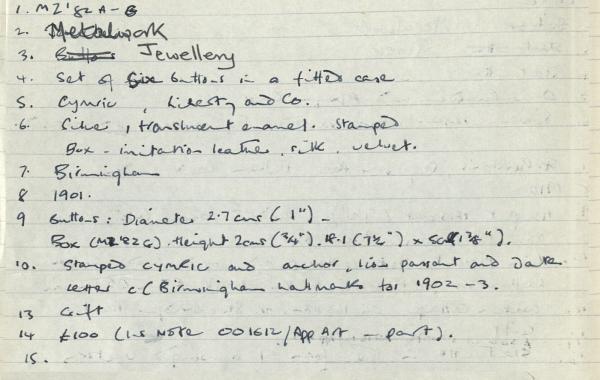 1. MZ'82 A-G
2. Metalwork
3. Buttons Jewellery
4. Set of Six buttons in a fitted case
5. Cymric, Liberty and Co.
6. Silver, translucent enamel. Stamped
Box - imitation leather, silk, velvet.
7. Birmingham
8 1901.
9 Buttons: Diameter 2.7cms (1") -
Box (MZ'82G). Height 2cms (3/4"). 18.1 (7 1/2") x
10. Stamped cymric and anchor, lion passant and date
letter c (Birmingham hallmarks for 1902-3.
13 Gift
14 £100 (I.S Note 001612/App Art - part).
15.